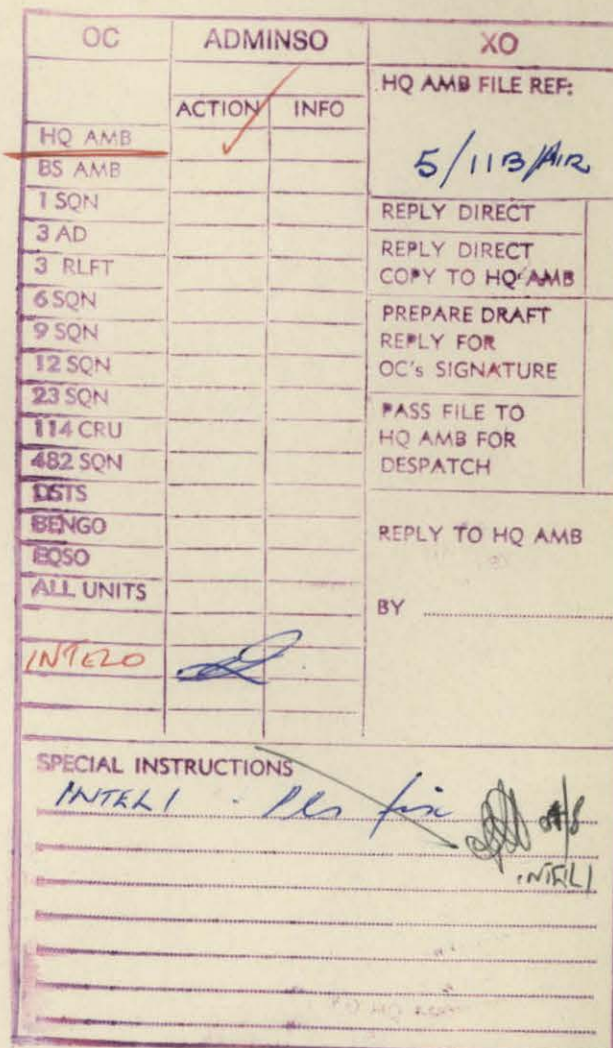 OC ADMINSO XO
HQ AMB FILE REF:
ACTION INFO
5/11B/AIR
HQ AMB
BS AMB
1 SQN
3 AD
3 RLFT
6 SQN
9 SQN
12 SQN
23 SQN
114 CRU
482 SQN
DSTS
BENGO
EQSO
ALL UNITS
INTELO
REPLY DIRECT
REPLY DIRECT
COPY TO HQ AMB
PREPARE DRAFT
REPLY FOR
OC's SIGNATURE
PASS FILE TO
HQ AMB FOR
DESPATCH
REPLY TO HQ AMB
BY
SPECIAL INSTRUCTIONS
INTEL1 - Pls fix
INTEL1